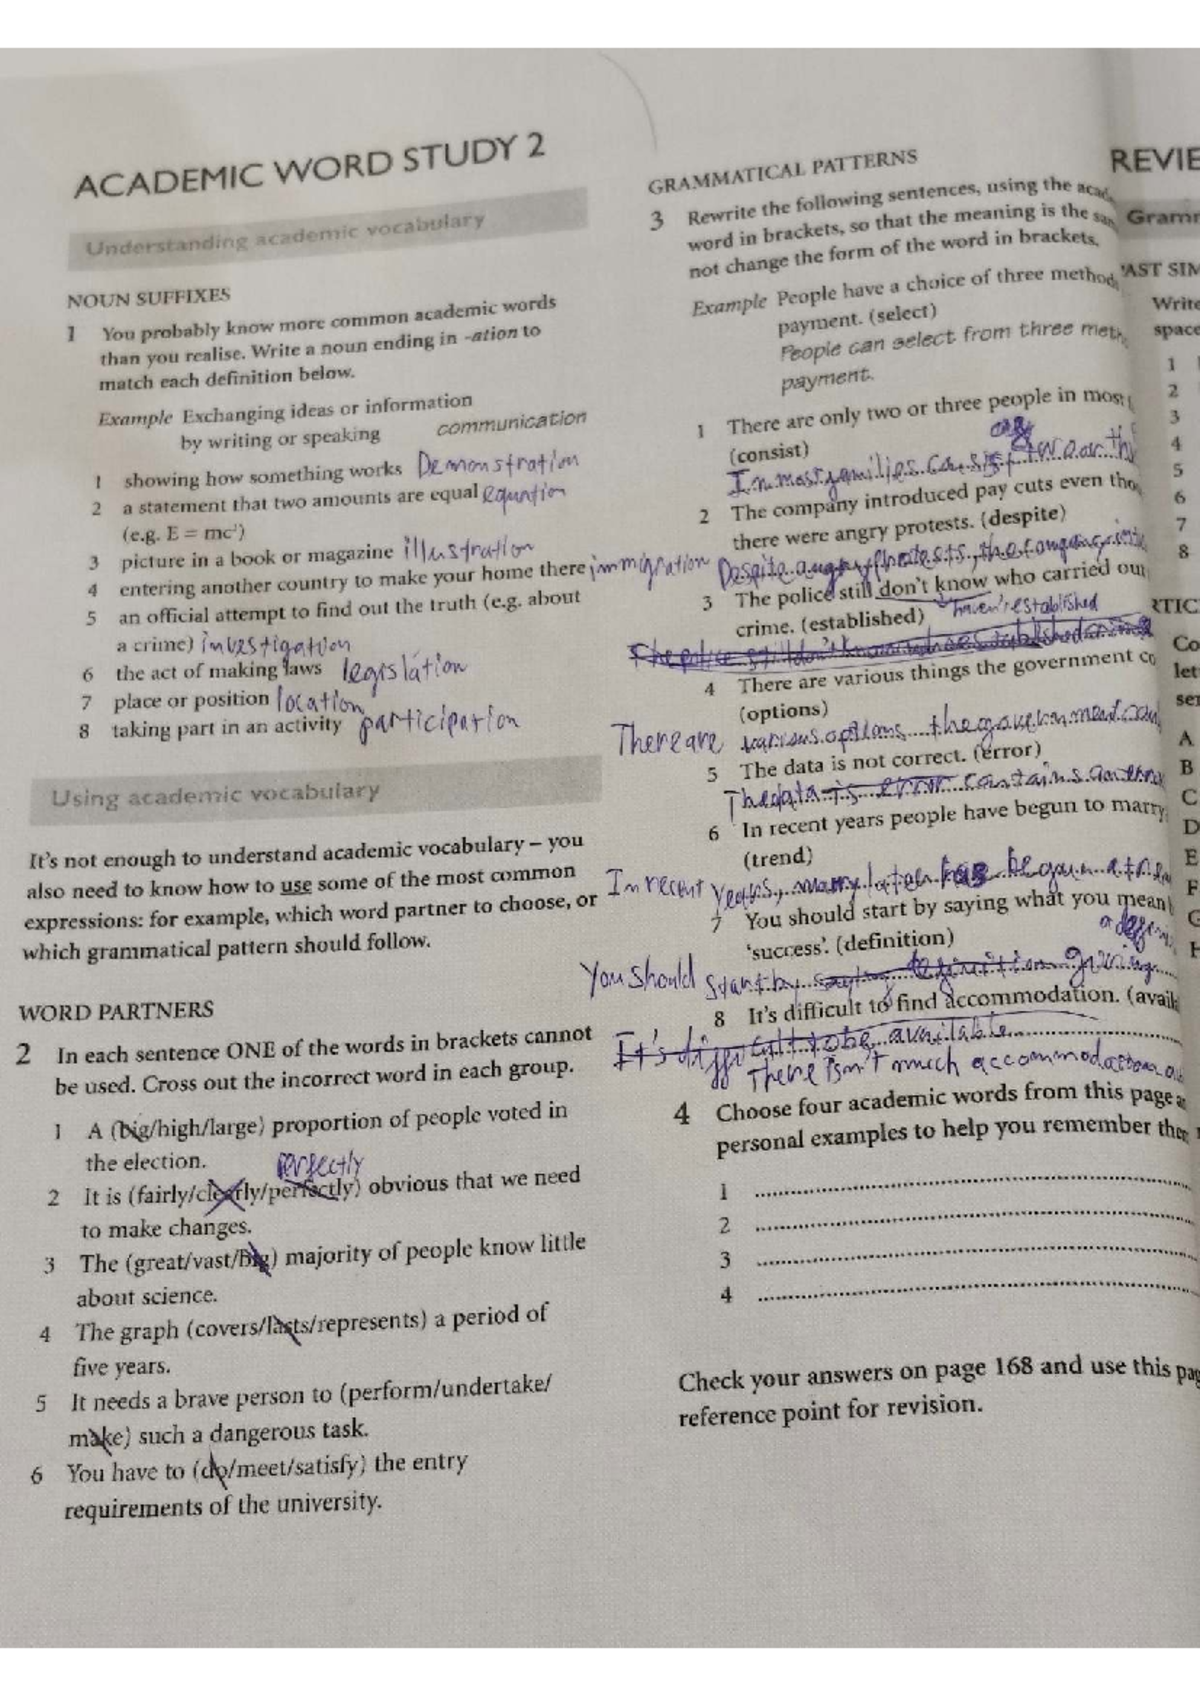 ACADEMIC WORD STUDY 2
Understanding academic vocabulary
NOUN SUFFIXES
1 You probably know more common academic words
than you realise. Write a noun ending in -ation to
match each definition below.
Example Exchanging ideas or information
by writing or speaking communication
1 showing how something works Demonstration
2 a statement that two amounts are equal equation
(e.g. E = mc²)
3 picture in a book or magazine illustration
4 entering another country to make your home there immigration
5 an official attempt to find out the truth (e.g. about
a crime) investigation
6 the act of making laws legislation
7 place or position location
8 taking part in an activity participation
Using academic vocabulary
It's not enough to understand academic vocabulary – you
also need to know how to use some of the most common
expressions: for example, which word partner to choose, or
which grammatical pattern should follow.
WORD PARTNERS
2 In each sentence ONE of the words in brackets cannot
be used. Cross out the incorrect word in each group.
1 A (big/high/large) proportion of people voted in
the election.
perfectly
2 It is (fairly/clearly/perfectly) obvious that we need
to make changes.
3 The (great/vast/big) majority of people know little
about science.
4 The graph (covers/lasts/represents) a period of
five years.
5 It needs a brave person to (perform/undertake/
make) such a dangerous task.
6 You have to (do/meet/satisfy) the entry
requirements of the university.
GRAMMATICAL PATTERNS
3 Rewrite the following sentences, using the
word in brackets, so that the meaning is the
not change the form of the word in brackets.
Example People have a choice of three
payment. (select)
People can select from three
payment.
1 There are only two or three people in most
(consist)
In most families consist two or
2 The company introduced pay cuts even
there were angry protests. (despite)
Despite angry protests, the company
3 The police still don't know who carried out
crime. (established) haven't established
The police still don't know who established
4 There are various things the government
(options)
There are various options the government
5 The data is not correct. (error)
The data is error contains an error
6 In recent years people have begun to marry
(trend)
In recent years, marry later has began a
7 You should start by saying what you mean
'success'. (definition)
You should start by saying definition giving
8 It's difficult to find accommodation.
It's difficult to be available
There isn't much accommodation
4 Choose four academic words from this page
personal examples to help you remember
1
2
3
4
Check your answers on page 168 and use this
reference point for revision.
REVIE
Gramm
AST SIM
Write
space
1
2
3
4
5
6
7
8
RTIC
Co
let
ser
A
B
C
D
E
F
G
H